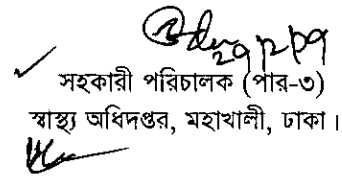 29/12/09
সহকারী পরিচালক (পার-৩)
স্বাস্থ্য অধিদপ্তর, মহাখালী, ঢাকা।